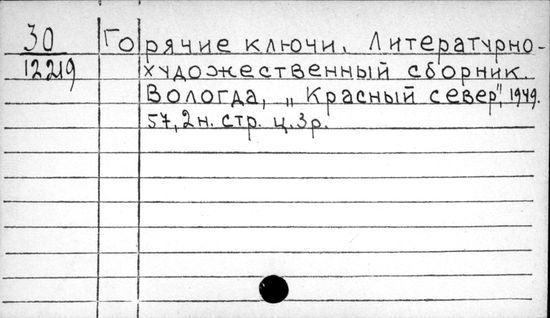 30 Горячие ключи. Литературно-
12219 художественный сборник.
Вологда, „Красный север", 1949.
57, 2н. стр. ц. 3р.